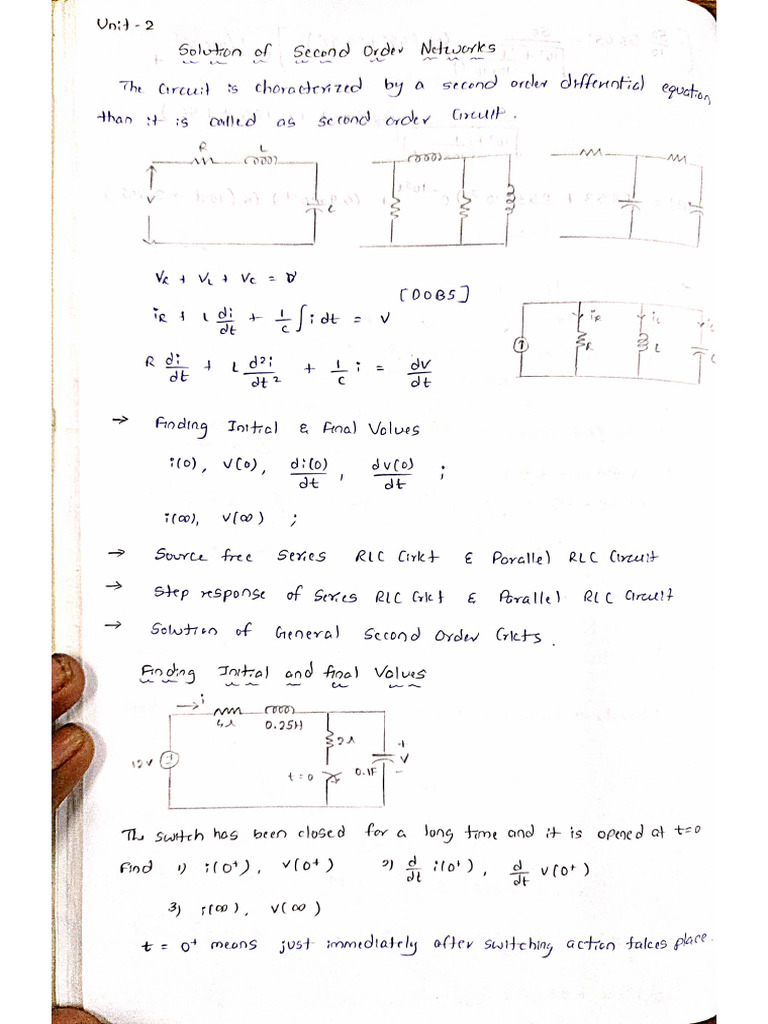 Unit - 2
Solution of Second Order Networks
The Circuit is characterized by a second order differential equation
than it is called as second order Circuit.
R L
V
C
V_R + V_L + V_C = V
[DOBS]
i_R + L di/dt + 1/C ∫ i dt = V
i_R i_L
R L
R di/dt + L d²i/dt² + 1/C i = dv/dt
→ Finding Initial & Final Values
i(0), V(0), di(0)/dt, dv(0)/dt ;
i(∞), V(∞) ;
→ Source free Series RLC Cirkt & Parallel RLC Circuit
→ Step response of Series RLC Crkt & Parallel RLC Circuit
→ Solution of General Second Order Crkts.
Finding Initial and final Values
i
4Ω 0.25H
2Ω
12V
t=0 0.1F
+ V -
The switch has been closed for a long time and it is opened at t=0
Find 1) i(0⁺), V(0⁺) 2) d/dt i(0⁺), d/dt v(0⁺)
3) i(∞), V(∞)
t = 0⁺ means just immediately after switching action takes place.